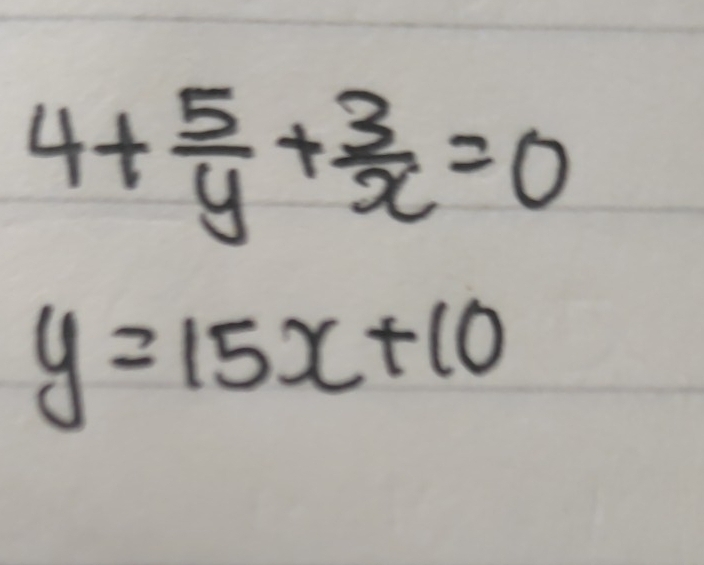 4 + 5/y + 3/x = 0
y = 15x + 10